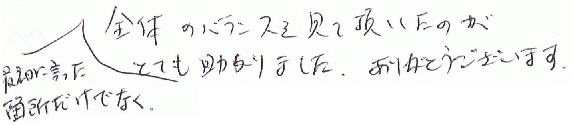 全体のバランスを見て頂いたのが
とても助かりました。ありがとうございます。
最初に言った
箇所だけでなく、